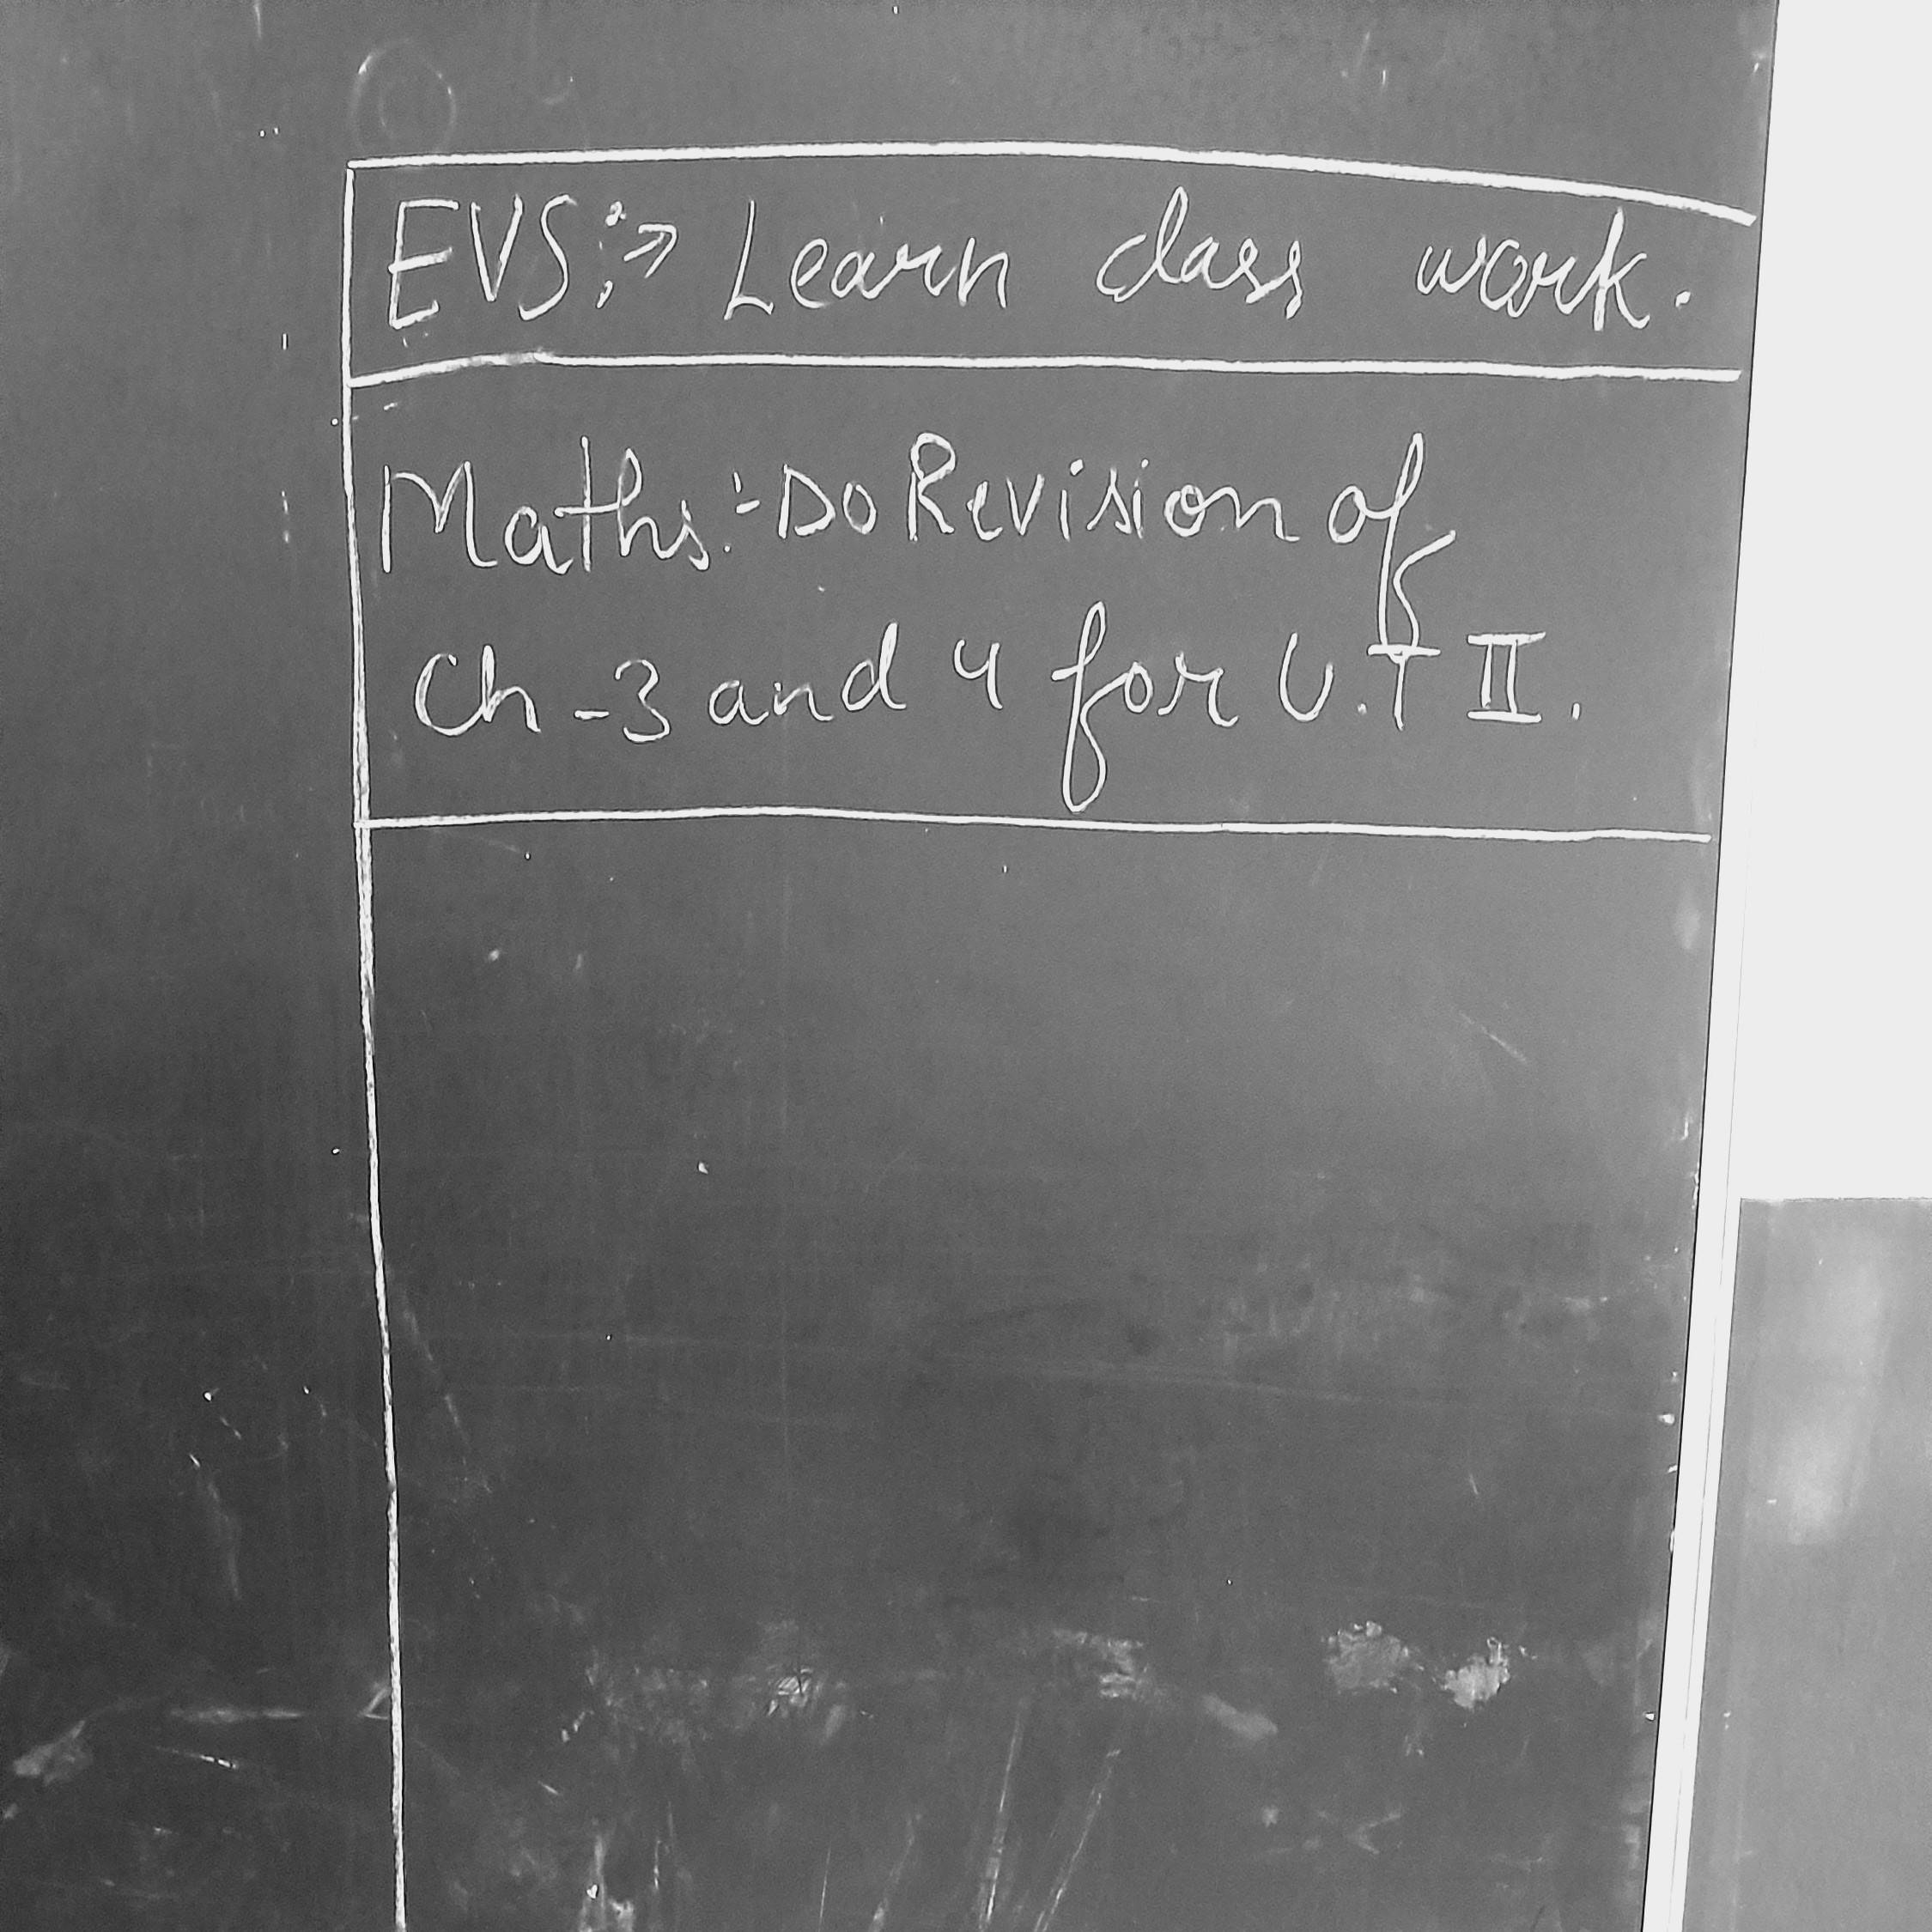 EVS:-> Learn class work.
Maths:- Do Revision of
Ch-3 and 4 for U.T II.